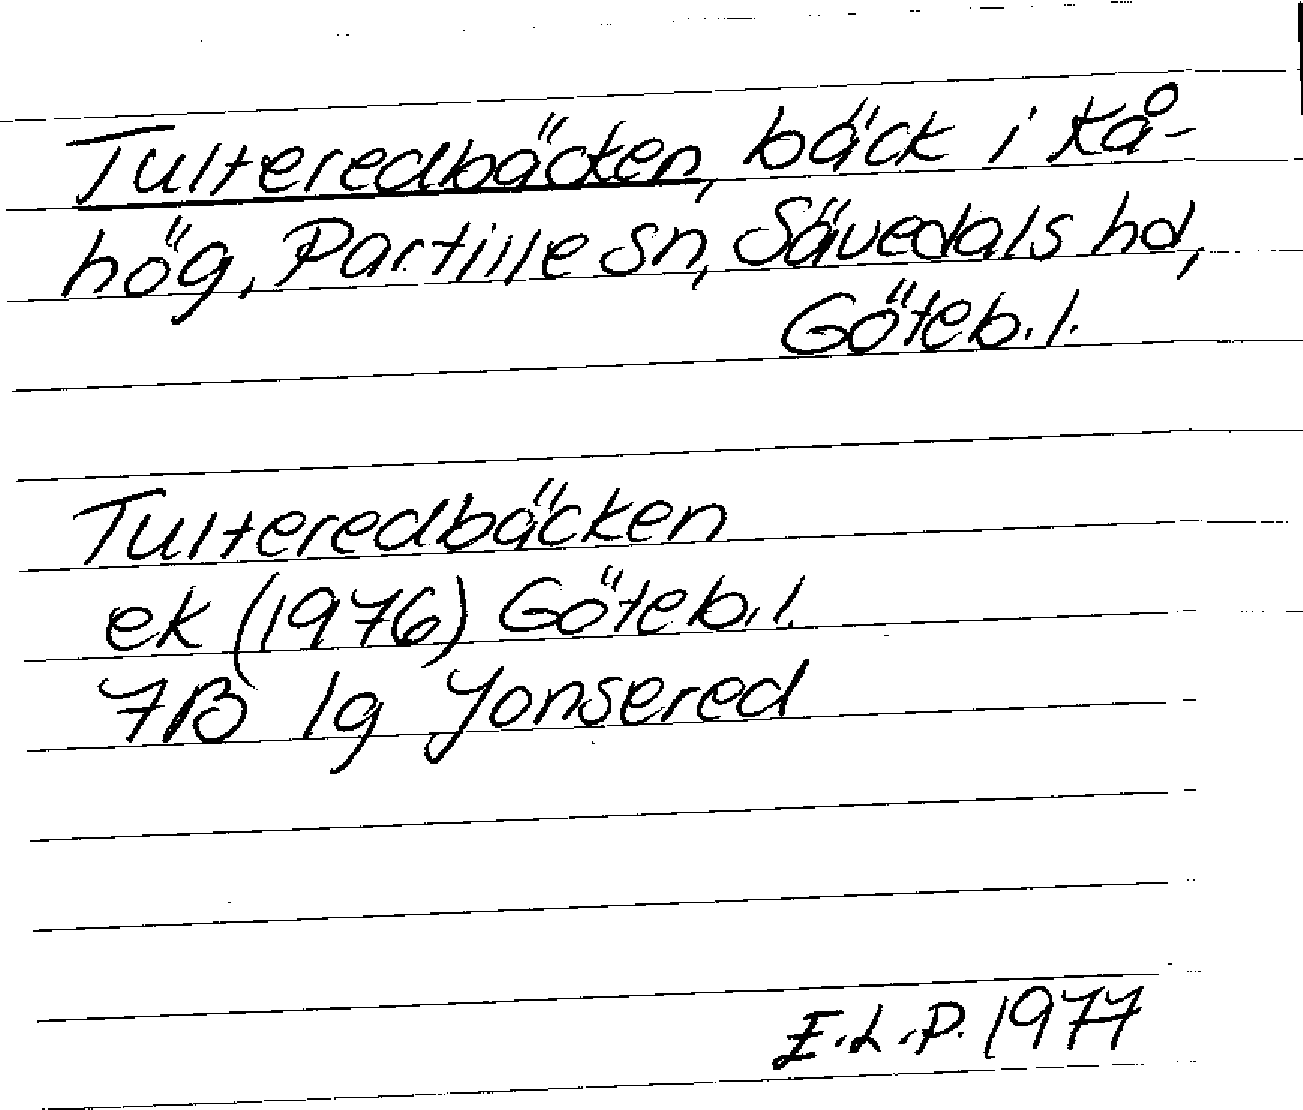 Tulteredbäcken, bäck i Kå-
hög, Partille sn, Sävedals hd,
Göteb. l.
Tulteredbäcken
ek (1976) Göteb. l.
7B 1g Jonsered
E.L.P. 1977